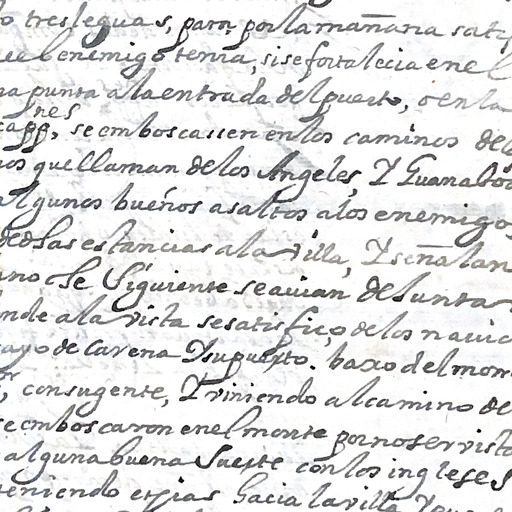 o tres leguas, para por la mañana satis
ue el enemigo tenia, si se fortalecia en el
na punta a la entrada del puerto, o en la
capp.nes, se emboscassen en los caminos de
nos que llaman de los Angeles, Y Guanabo
algunos buenos asaltos a los enemigos
de las estancias a la villa, Y señalan
ano, se Siguiente se auian de Iunta
nde a la vista se satisfiço de los naui
ayo de Carena Y su puerto. baxo del mon
, con su gente, Y viniendo al camino de
se emboscaron en el monte por no ser visto
alguna buena Suerte con los ingleses
teniendo espias hacia la villa